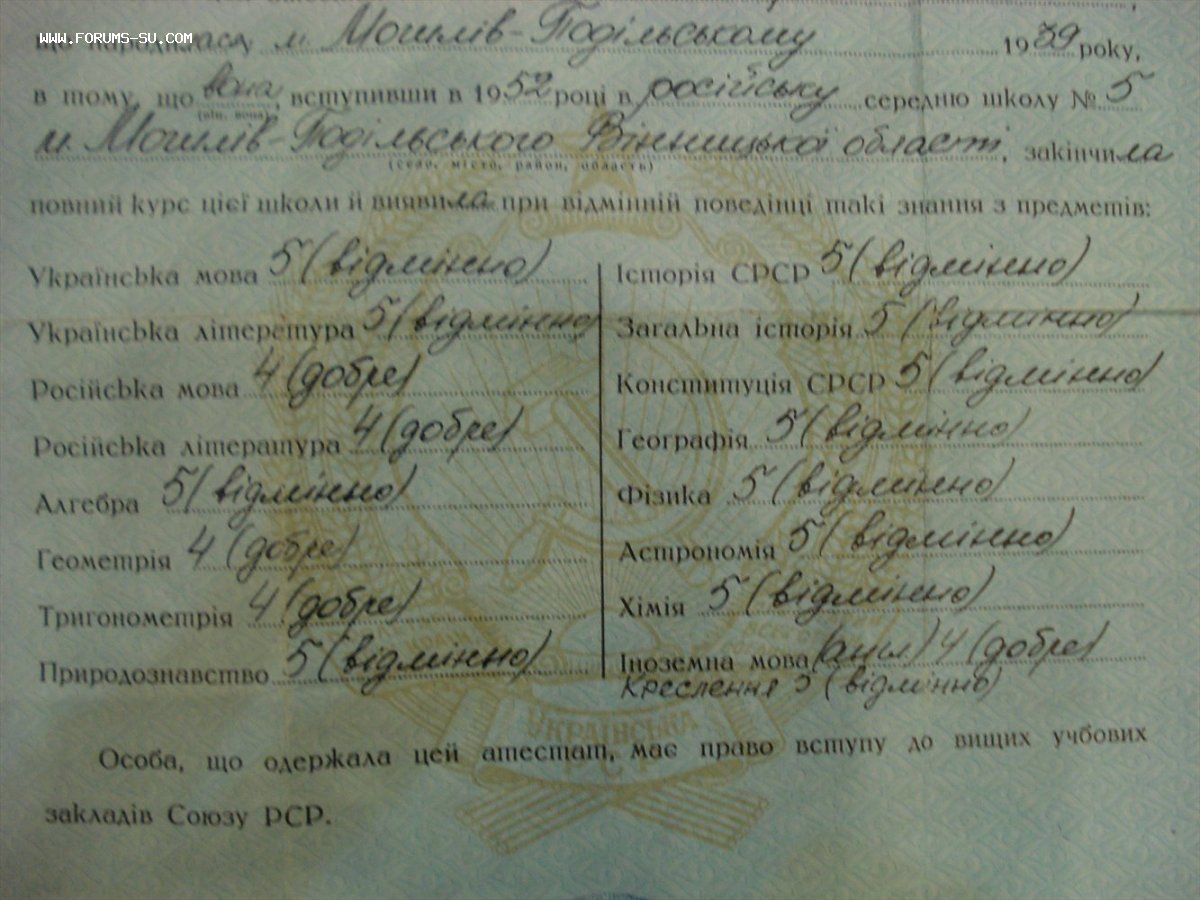 www.forums-su.com
що народилася м. Могилів-Подільському 1939 року,
в тому, що вона, вступивши в 1952 році в російську середню школу № 5
(він, вона)
м. Могилів-Подільського Вінницької області, закінчила
(село, місто, район, область)
повний курс цієї школи й виявила при відмінній поведінці такі знання з предметів:
Українська мова 5 (відмінно)
Українська література 5 (відмінно)
Російська мова 4 (добре)
Російська література 4 (добре)
Алгебра 5 (відмінно)
Геометрія 4 (добре)
Тригонометрія 4 (добре)
Природознавство 5 (відмінно)
Історія СРСР 5 (відмінно)
Загальна історія 5 (відмінно)
Конституція СРСР 5 (відмінно)
Географія 5 (відмінно)
Фізика 5 (відмінно)
Астрономія 5 (відмінно)
Хімія 5 (відмінно)
Іноземна мова (англ) 4 (добре)
Креслення 5 (відмінно)
УКРАЇНСЬКА
РСР
Особа, що одержала цей атестат, має право вступу до вищих учбових
закладів Союзу РСР.